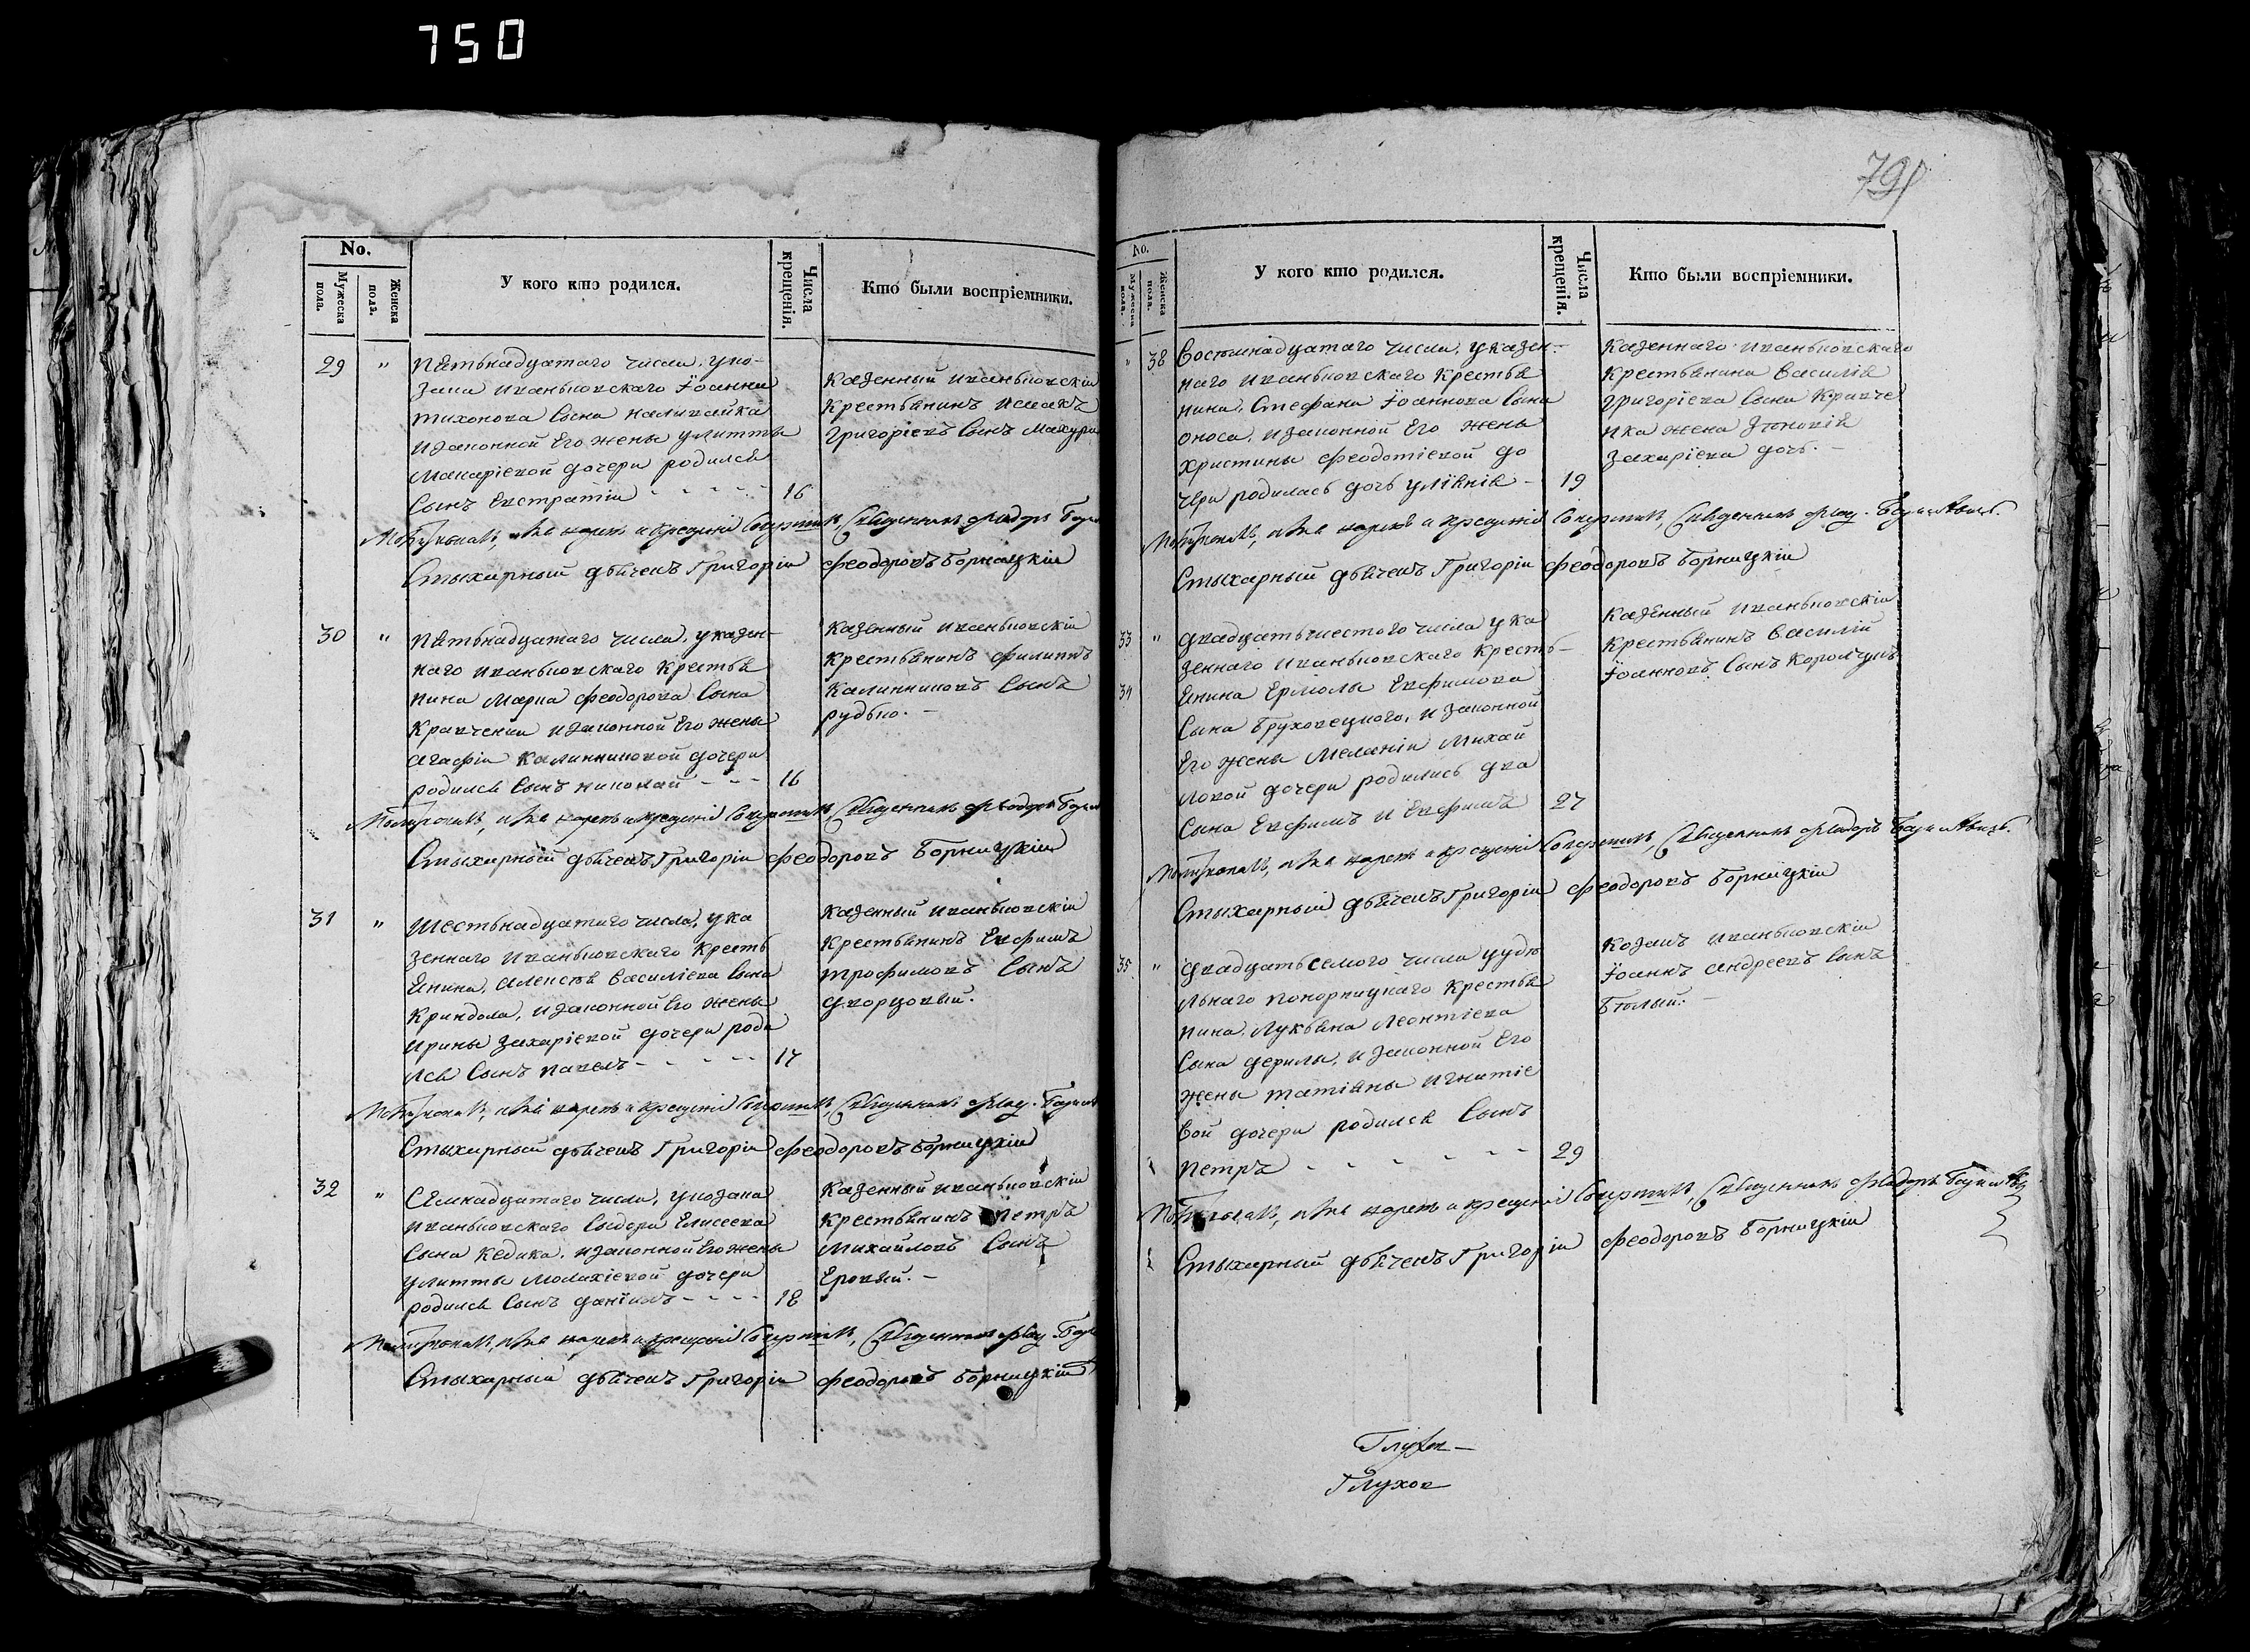 750
No.
Мужеска пола.
Женска пола.
У кого кто родился.
Числа крещенія.
Кто были воспріемники.
29 " Пятьнадцатаго числа, у ко-
зака Иваньковскаго Іоанна
Тихонова сына Наливайка
и законной его жены Улитты
Макаріевой дочери родился
сынъ Евстратій - - - - 16
Казенный Иваньковскій
крестьянинъ Исаакъ
Григоріевъ сынъ
Молитвовалъ, имя нарекъ и крещеніе совершилъ, Священникъ Феодоръ
Стыхарный дьячекъ Григорій Феодоровъ Борницкій
30 " Пятьнадцатаго числа, у казен-
наго Иваньковскаго крестья
нина Марка Феодорова сына
Кравченка и законной его жены
Агафіи Калинниковой дочери
родился сынъ Николай - - - 16
Казенный Иваньковскій
крестьянинъ Филиппъ
Калинниковъ сынъ
Рудько. -
Молитвовалъ, имя нарекъ и крещеніе совершилъ, Священникъ Феодоръ
Стыхарный дьячекъ Григорій Феодоровъ Борницкій
31 " Шестьнадцатаго числа, у ка
зеннаго Иваньковскаго кресть
янина, Алексія Василіева сына
Криндола, и законной его жены
Ирины Захаріевой дочери роди
лся сынъ Павелъ - - - - 17
Казенный Иваньковскій
крестьянинъ Евфимъ
Трофимовъ сынъ
Дворцовый.
Молитвовалъ, имя нарекъ и крещеніе совершилъ, Священникъ Феод.
Стыхарный дьячекъ Григорій Феодоровъ Борницкій
32 " Семнадцатаго числа, у козака
Иваньковскаго Сидора Елисеева
сына Кедика, и законной его жены
Улитты Малахіевой дочери
родился сынъ Даніилъ - - - - 18
Казенный Иваньковскій
крестьянинъ Петръ
Михайловъ сынъ
Еровый. -
Молитвовалъ, имя нарекъ и крещеніе совершилъ, Священникъ Феод.
Стыхарный дьячекъ Григорій Феодоровъ Борницкій
791
No.
Мужеска пола.
Женска пола.
У кого кто родился.
Числа крещенія.
Кто были воспріемники.
" 38 Восемнадцатаго числа, у казен-
наго Иваньковскаго крестья
нина, Стефана Іоаннова сына
Оноса, и законной его жены
Христины Феодотіевой до
чери родилась дочь Уліянія - 19
Казеннаго Иваньковскаго
крестьянина Василія
Григоріева сына Кравче
нка жена
Захаріева дочь. -
Молитвовалъ, имя нарекъ и крещеніе совершилъ, Священникъ Феод.
Стыхарный дьячекъ Григорій Феодоровъ Борницкій
33 " Двадцатьшестого числа у ка
зеннаго Иваньковскаго кресть-
34 янина Ермолы Евфимова
сына Бруховецкого, и законной
его жены Меланіи Михай
ловой дочери родились два
сына Евфимъ и Евфимъ 27
Казенный Иваньковскій
крестьянинъ Василій
Іоанновъ сынъ
Молитвовалъ, имя нарекъ и крещеніе совершилъ, Священникъ Феодоръ
Стыхарный дьячекъ Григорій Феодоровъ Борницкій
35 " Двадцатьсемого числа у удѣ
льнаго Понорницкаго крестья
нина, Лукьяна Леонтіева
сына Дерилы, и законной его
жены Татіяны Игнатіе
вой дочери родился сынъ
Петръ - - - - - - 29
Козакъ Иваньковскій
Іоаннъ Андреевъ сынъ
Бѣлый. -
Молитвовалъ, имя нарекъ и крещеніе совершилъ, Священникъ Феодоръ
Стыхарный дьячекъ Григорій Феодоровъ Борницкій
Глухов